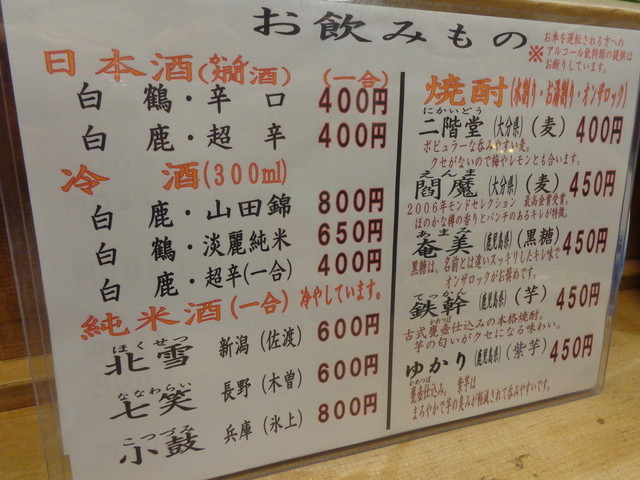 お飲みもの
お車を運転される方への
※アルコール飲料類の提供は
お断りしています。
日本酒(かん酒) (一合)
白鶴・辛口 400円
白鹿・超辛 400円
冷酒(300ml)
白鹿・山田錦 800円
白鶴・淡麗純米 650円
白鹿・超辛(一合) 400円
純米酒(一合)冷やしています。
ほくせつ
北雪 新潟(佐渡) 600円
ななわらい
七笑 長野(木曽) 600円
こつづみ
小鼓 兵庫(氷上) 800円
焼酎(水割り・お湯割り・オンザロック)
にかいどう
二階堂(大分県)(麦) 400円
ポピュラーな呑みやすい麦。
クセがないので梅やレモンとも合います。
えんま
閻魔(大分県)(麦) 450円
2006年モンドセレクション 最高金賞受賞。
ほのかな樽の香りとパンチのあるキレが特徴。
あまみ
奄美(鹿児島県)(黒糖) 450円
黒糖は、名前とは違いスッキリしたキレ味で
オンザロックがお奨めです。
てっかん
鉄幹(鹿児島県)(芋) 450円
かめつぼ
古式甕壺仕込みの本格焼酎。
芋の匂いがクセになる味わい。
ゆかり(鹿児島県)(紫芋) 450円
かめつぼ
甕壺仕込。 紫芋は
まろやかで芋の臭みが軽減されて呑みやすいです。